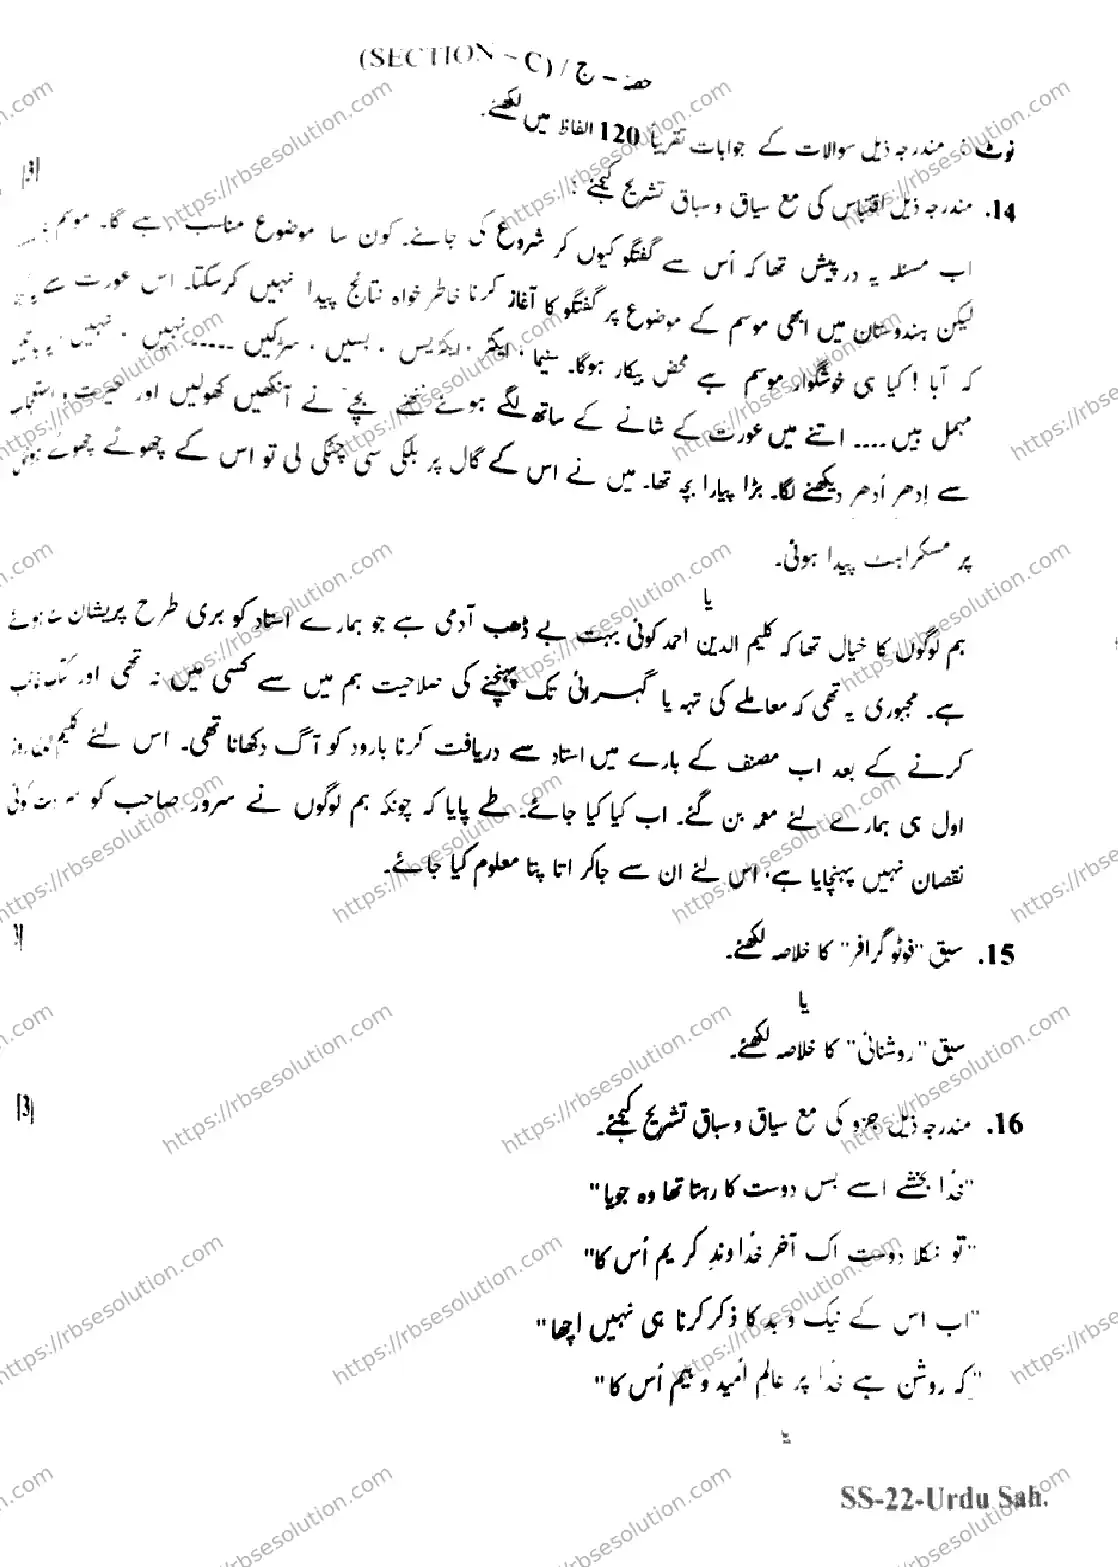 (SECTION – C) / حصہ – ج
نوٹ : مندرجہ ذیل سوالات کے جوابات تقریباً 120 الفاظ میں لکھئے۔
14. مندرجہ ذیل اقتباس کی مع سیاق و سباق تشریح کیجئے :
اب مسئلہ یہ درپیش تھا کہ اُس سے گفتگو کیوں کر شروع کی جائے۔ کون سا موضوع مناسب رہے گا۔ موسم
لیکن ہندوستان میں ابھی موسم کے موضوع پر گفتگو کا آغاز کرنا خاطر خواہ نتائج پیدا نہیں کرسکتا۔ اس عورت سے
کہ آہا ! کیا ہی خوشگوار موسم ہے محض بیکار ہوگا۔ سنیما ، ایکٹر ، ایکٹریس ، بسیں ، سڑکیں ..... نہیں ، نہیں
مہمل ہیں .... اتنے میں عورت کے شانے کے ساتھ لگے ہوئے ننھے بچے نے آنکھیں کھولیں اور
سے اِدھر اُدھر دیکھنے لگا۔ بڑا پیارا بچہ تھا۔ میں نے اس کے گال پر ہلکی سی چٹکی لی تو اس کے چھوٹے چھوٹے
پر مسکراہٹ پیدا ہوئی۔
یا
ہم لوگوں کا خیال تھا کہ کلیم الدین احمد کوئی بہت بے ڈھب آدمی ہے جو ہمارے استاد کو بری طرح پریشان
ہے۔ مجبوری یہ تھی کہ معاملے کی تہہ یا گہرائی تک پہنچنے کی صلاحیت ہم میں سے کسی میں نہ تھی اور کتاب
کرنے کے بعد اب مصنف کے بارے میں استاد سے دریافت کرنا بارود کو آگ دکھانا تھی۔ اس لئے کلیم
اول ہی ہمارے لئے معمہ بن گئے۔ اب کیا کیا جائے۔ طے پایا کہ چونکہ ہم لوگوں نے سرور صاحب کو
نقصان نہیں پہنچایا ہے، اس لئے ان سے جاکر اتا پتا معلوم کیا جائے۔
15. سبق "فوٹو گرافر" کا خلاصہ لکھئے۔
یا
سبق "روشنائی" کا خلاصہ لکھئے۔
16. مندرجہ ذیل جزو کی مع سیاق و سباق تشریح کیجئے۔ [3]
"خُدا بخشے اسے بس دوست کا رہتا تھا وہ جویا"
"تو نکلا دوست اک آخر خُداوندِ کریم اُس کا"
"اب اس کے نیک و بد کا ذکر کرنا ہی نہیں اچھا"
"کہ روشن ہے خُدا پر عالمِ اُمید و بیم اُس کا"
یا
SS-22-Urdu Sah.
https://rbsesolution.com